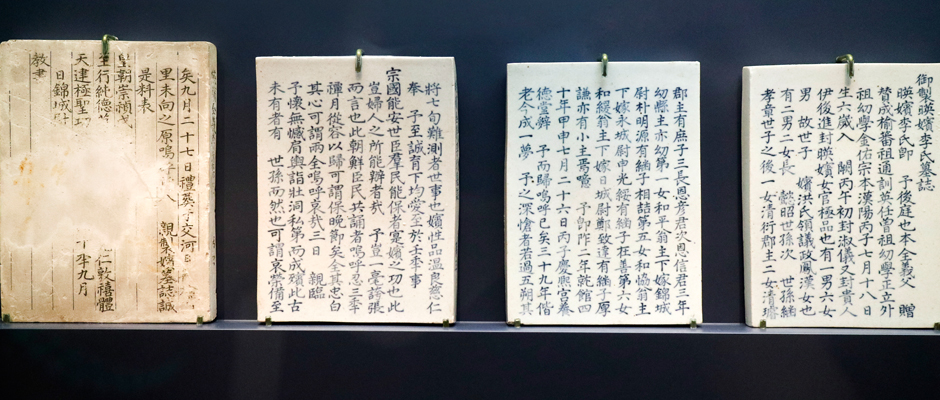 御製暎嬪李氏墓誌
暎嬪李氏卽 予後庭也本全義父 贈
贊成楡蕃祖通訓英任曾祖幼學正立外
祖幼學金佑宗本漢陽丙子七月十八日
生六歲入 闕丙午初封淑儀又封貴人
伊後進封暎嬪女官極品也有一男六女
男 故世子 嬪洪氏領議政鳳漢女也
有二男二女長 懿昭世孫次 世孫緬
孝章世子之後一女清衍郡主二女清璿
郡主有庶子三長恩彦君次恩信君三年
幼縣主亦幼第一女和平翁主下嫁錦城
尉朴明源有緬子相喆第五女和協翁主
下嫁永城尉申光綏有緬子在善第六女
和緩翁主下嫁日城尉鄭致達有緬子厚
謙亦有小主焉噫 予卽阼二年就館四
十年甲申七月二十六日丙子慶熙宮養
德堂辭 予而歸嗚呼已矣三十九年偕
老今成一夢 予之深愴者若過五朔其
將七旬難測者世也嬪性品溫良慈仁
奉 予至誠育下均愛至於壬午事
宗國能安世臣羣民能保者寔嬪之功也此
豈婦人之所能辦者哉 予豈一毫誇張
而言也此朝鮮臣民共誦者嗚呼忍三年
禫月從容以歸可謂保晩節矣全其忠白
其心可謂兩全嗚呼哀哉二日 親臨
予懷無憾肩輿詣壯洞私第而成殯此古
未有者有 世孫而然也可謂哀榮備至
矣九月二十七日禮葬于交河
里未向之原嗚呼 親製嬪墓誌誠
是料表
皇朝崇禎
至行純德 仁敦禧體
天建極聖功 十年九月
日錦城尉
教書